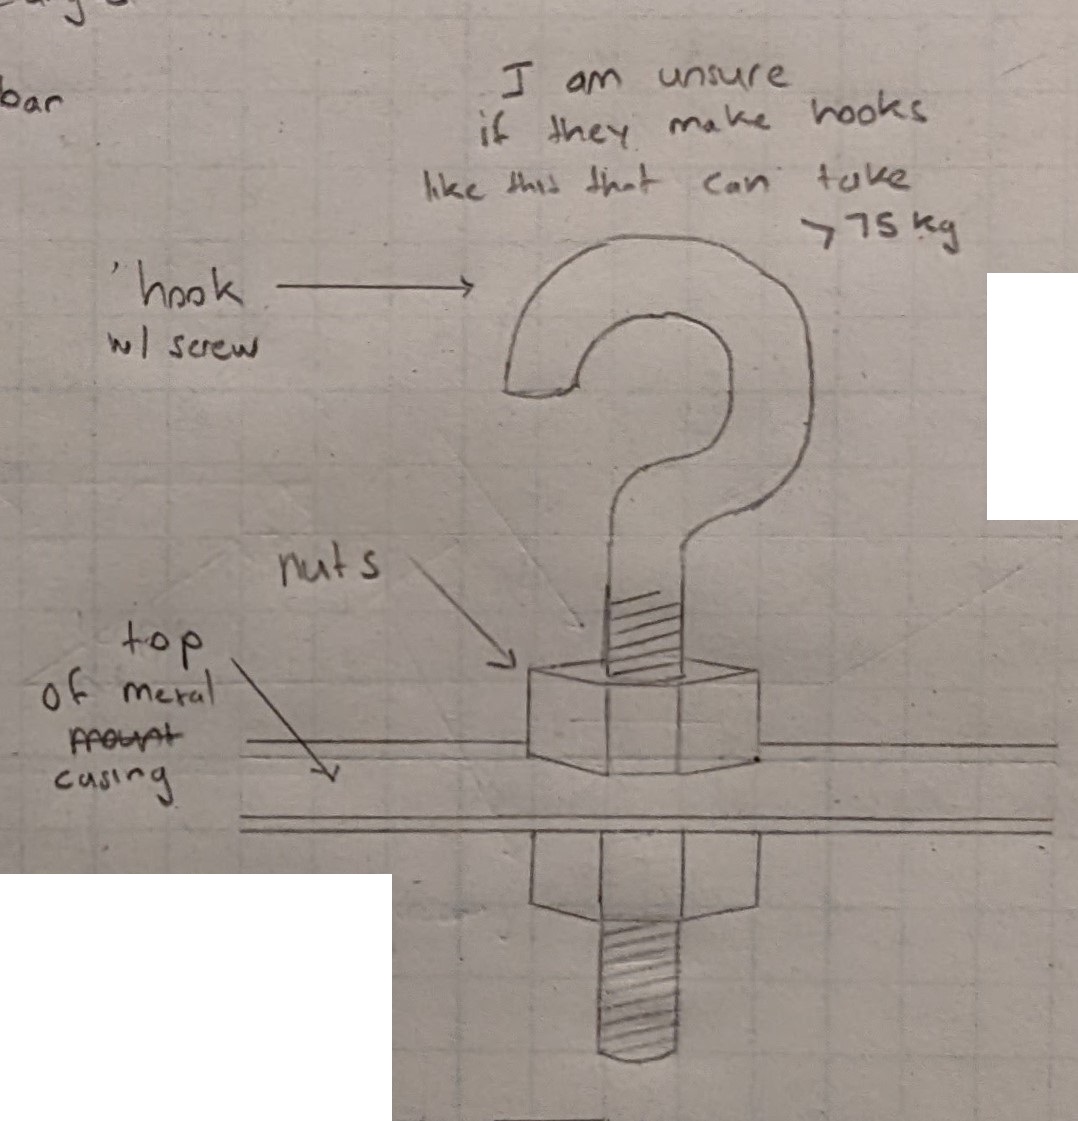 bar
I am unsure
if they make hooks
like this that can take
>75 kg
'hook
w/ screw
nuts
top
of metal
mount
casing